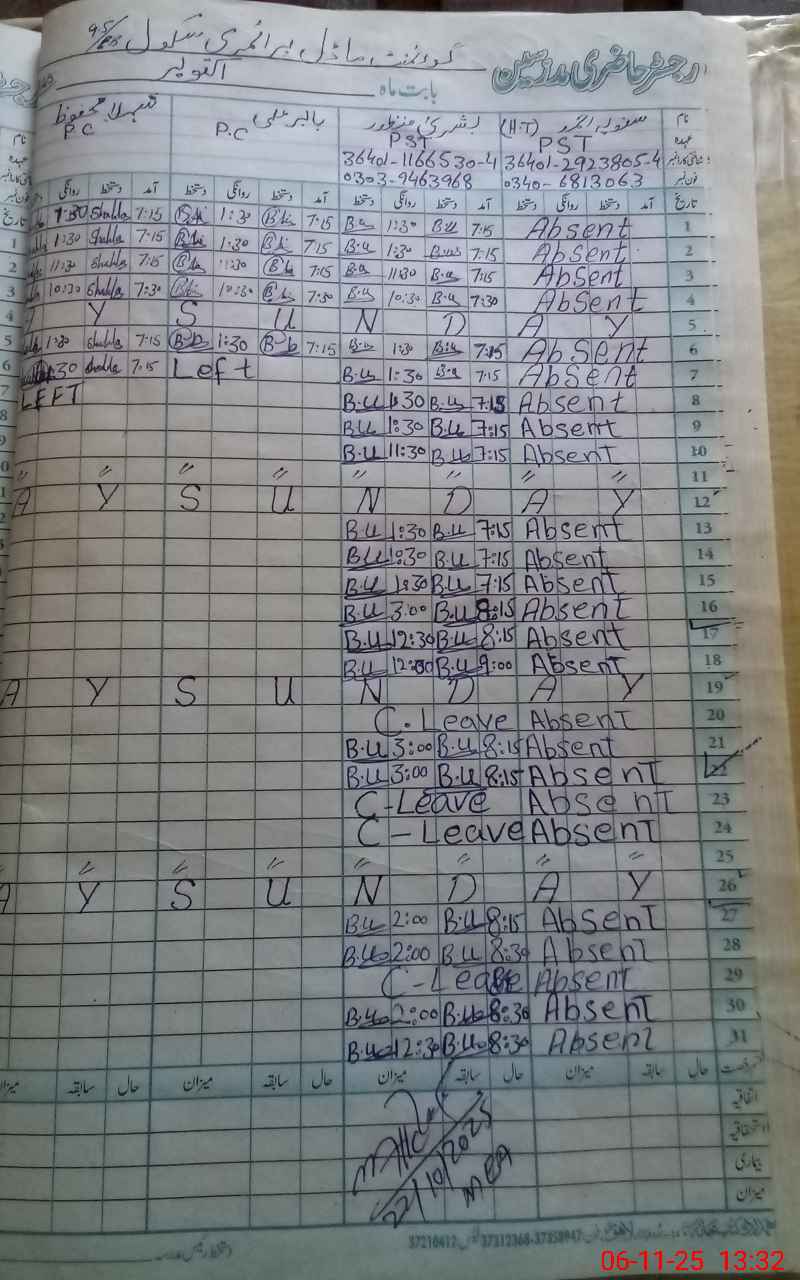 رجسٹر حاضری مدرسین گورنمنٹ ماڈل پرائمری سکول
بابت ماہ اکتوبر
نام
عہدہ PST (H.T) PST P.C P.C
36401-2923805-4 36401-1166530-4
فون نمبر 0340-6813063 0303-9463968
تاریخ آمد دستخط روانگی دستخط آمد دستخط روانگی دستخط آمد دستخط روانگی دستخط آمد دستخط روانگی
1:30 Shahla 7:15 1:30 7:15 B.u 1:30 B.u 7:15 Absent 1
1:30 Shahla 7:15 1:30 7:15 B.u 1:30 7:15 Absent 2
11:30 Shahla 7:15 11:30 7:15 B.u 11:30 B.u 7:15 Absent 3
10:30 Shahla 7:30 10:30 7:30 B.u 10:30 B.u 7:30 Absent 4
Y S U N D A Y 5
1:30 Shahla 7:15 1:30 7:15 B.u 1:30 B.u 7:15 Absent 6
:30 Shahla 7:15 Left B.u 1:30 B.u 7:15 Absent 7
LEFT B.u 1:30 B.u 7:15 Absent 8
B.u 1:30 B.u 7:15 Absent 9
B.u 11:30 B.u 7:15 Absent 10
〃 〃 〃 〃 〃 〃 〃 〃 11
A Y S U N D A Y 12
B.u 1:30 B.u 7:15 Absent 13
B.u 1:30 B.u 7:15 Absent 14
B.u 1:30 B.u 7:15 Absent 15
B.u 3:00 B.u 8:15 Absent 16
B.u 12:30 B.u 8:15 Absent 17
B.u 12:00 B.u 9:00 Absent 18
A Y S U N D A Y 19
C. Leave Absent 20
B.u 3:00 B.u 8:15 Absent 21
B.u 3:00 B.u 8:15 Absent 22
C-Leave Absent 23
C-Leave Absent 24
〃 〃 〃 〃 〃 〃 〃 〃 25
A Y S U N D A Y 26
B.u 2:00 B.u 8:15 Absent 27
B.u 2:00 B.u 8:30 Absent 28
C-Leave Absent 29
B.u 2:00 B.u 8:30 Absent 30
B.u 12:30 B.u 8:30 Absent 31
حال سابقہ میزان حال سابقہ میزان حال سابقہ میزان حال سابقہ میزان
اتفاقیہ
استحقاقیہ
بیماری
میزان
22/10/2025
MEA
37210412 37312368-37358947
06-11-25 13:32